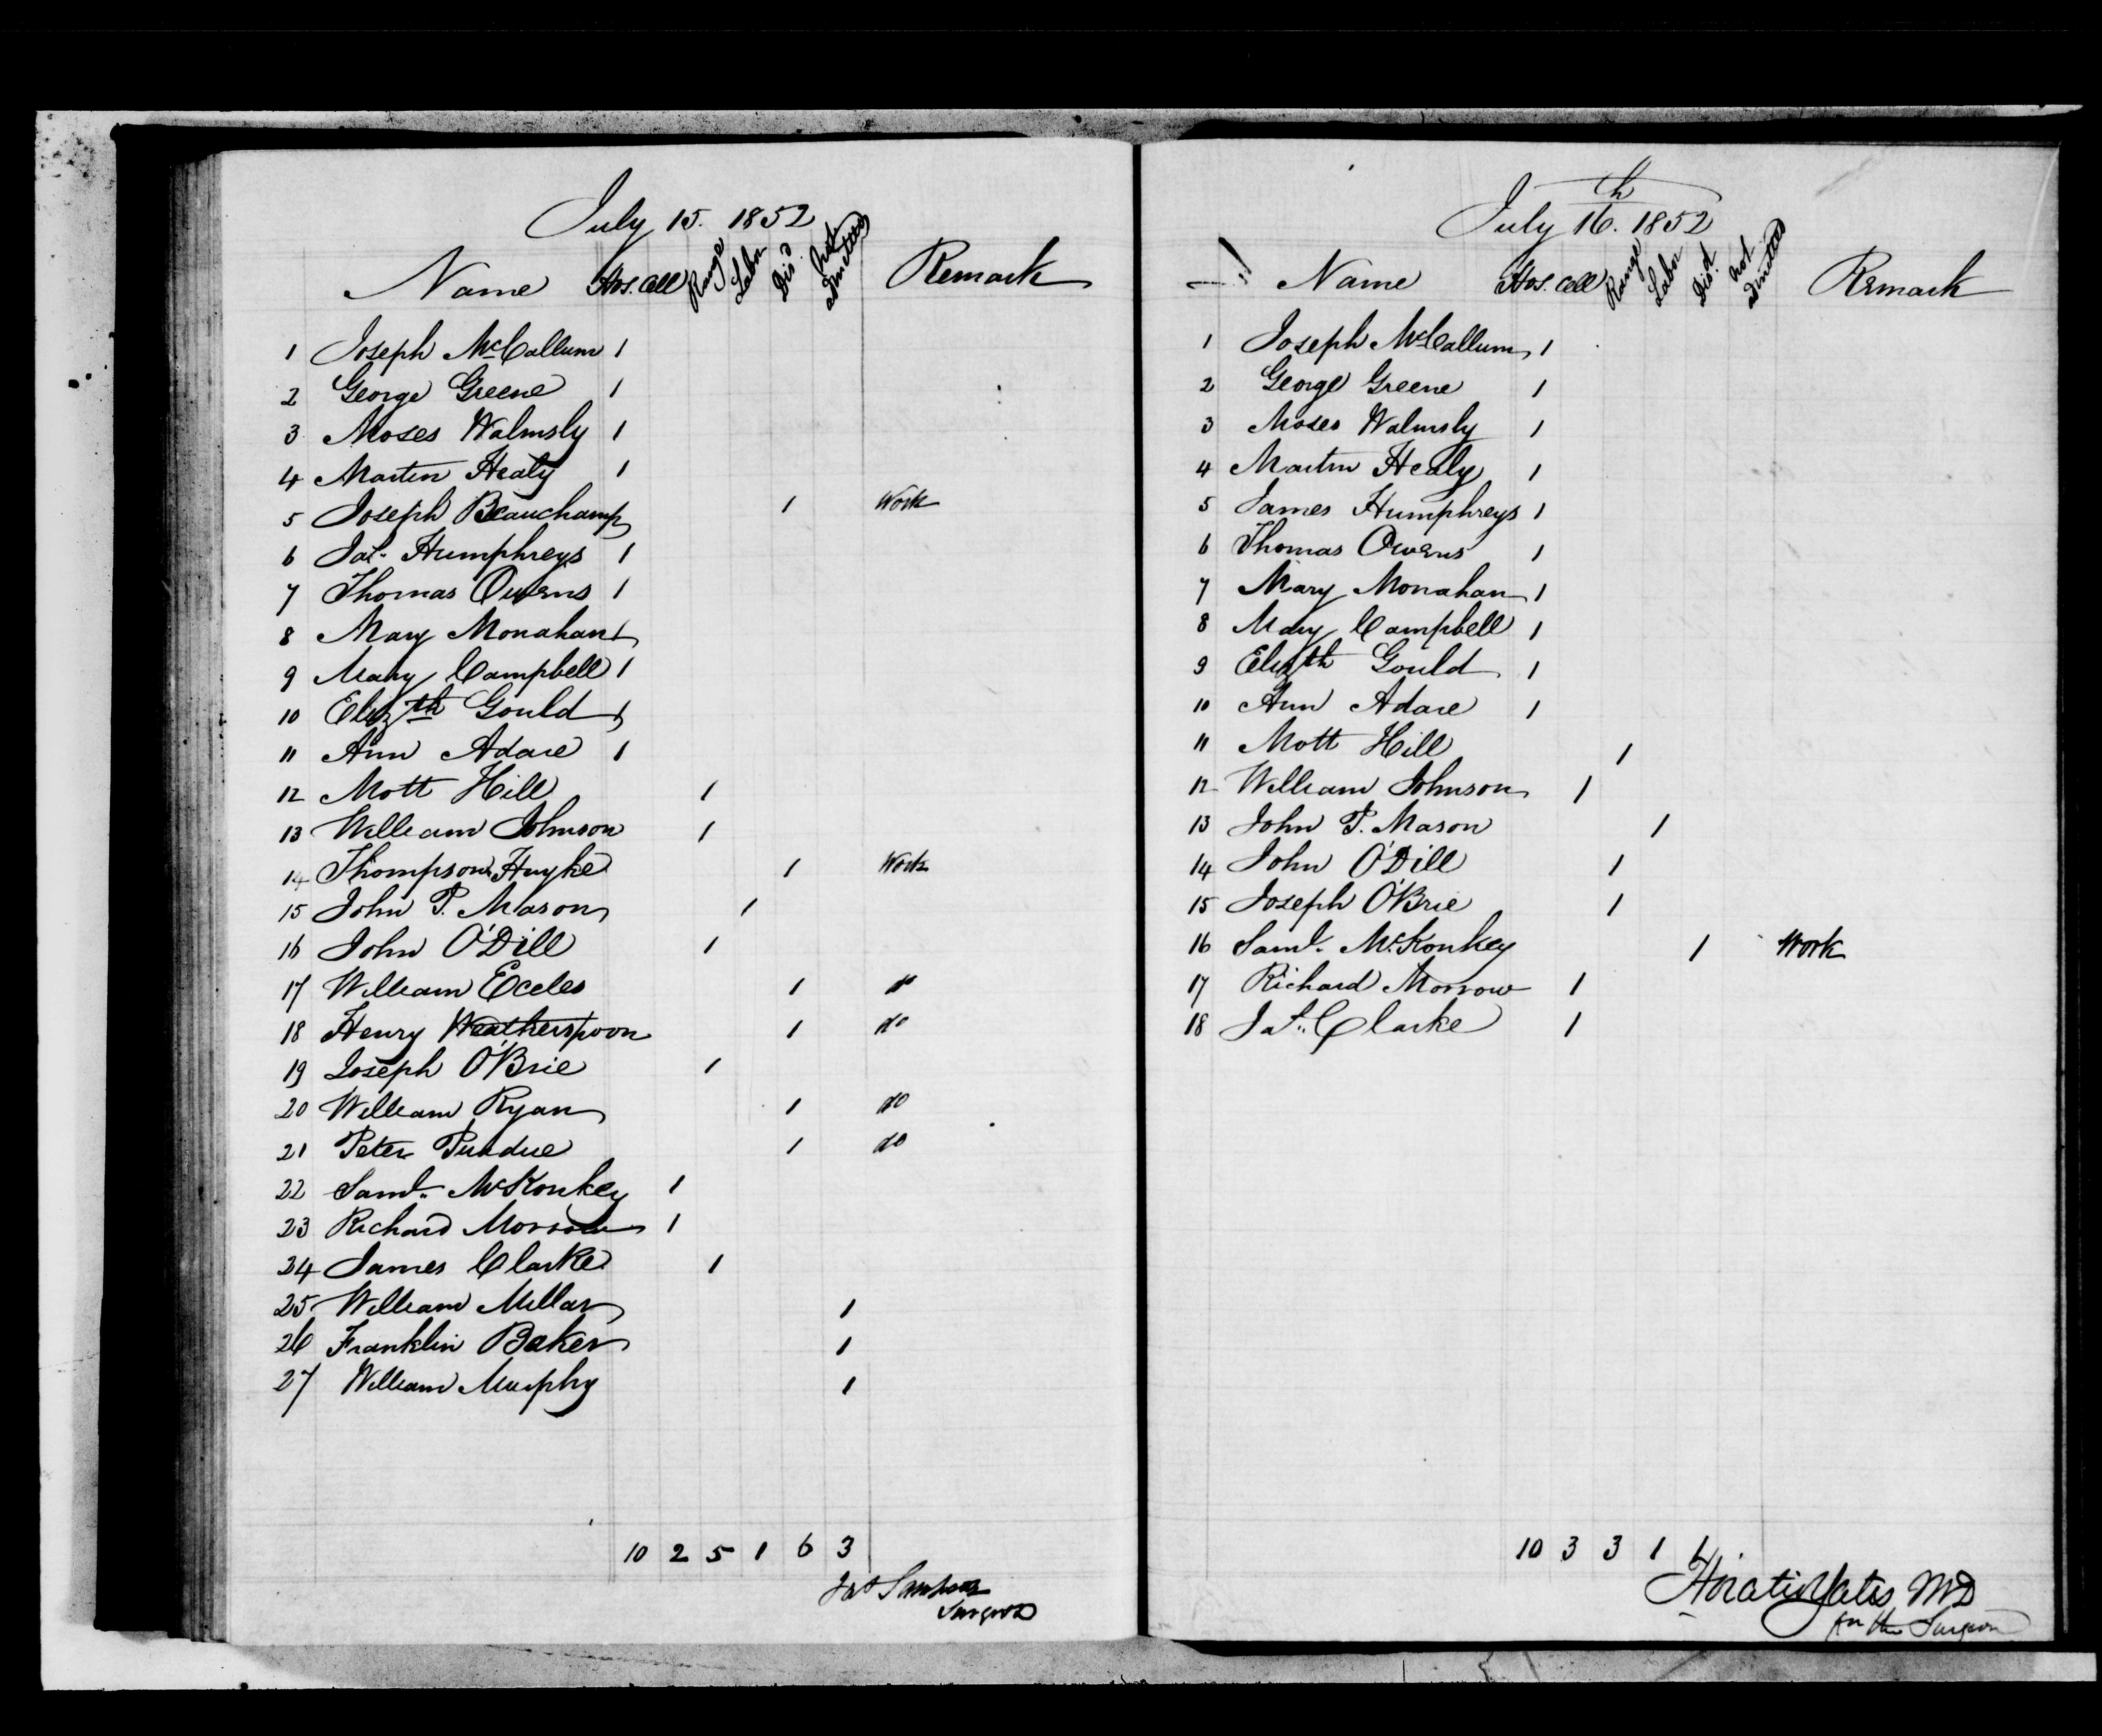 July 15. 1852
Name Hos. Cell Range Labr Dis'd not admitted Remark
1 Joseph McCallum 1
2 George Greene 1
3 Moses Walmsly 1
4 Martin Healy 1
5 Joseph Beauchamp 1 Work
6 Jas. Humphreys 1
7 Thomas Owens 1
8 Mary Monahan 1
9 Mary Campbell 1
10 Elizth Gould 1
11 Ann Adare 1
12 Mott Hill 1
13 William Johnson 1
14 Thompson Huyke 1 Work
15 John P. Mason 1
16 John O'Dill 1
17 William Eccles 1 do
18 Henry Weatherspoon 1 do
19 Joseph O'Brie 1
20 William Ryan 1 do
21 Peter Purdue 1 do
22 Saml. McKonkey 1
23 Richard Morrow 1
24 James Clarke 1
25 William Millar 1
26 Franklin Baker 1
27 William Murphy 1
10 2 5 1 6 3
Jas Sampson
Surgeon
July 16th. 1852
Name Hos. Cell Range Labr Disd. not admitted Remark
1 Joseph McCallum 1
2 George Greene 1
3 Moses Walmsly 1
4 Martin Healy 1
5 James Humphreys 1
6 Thomas Owens 1
7 Mary Monahan 1
8 Mary Campbell 1
9 Elizth Gould 1
10 Ann Adare 1
11 Mott Hill 1
12 William Johnson 1
13 John P. Mason 1
14 John O'Dill 1
15 Joseph O'Brie 1
16 Saml. McKonkey 1 Work
17 Richard Morrow 1
18 Jas. Clarke 1
10 3 3 1 1
Horatio Yates MD
for the Surgeon